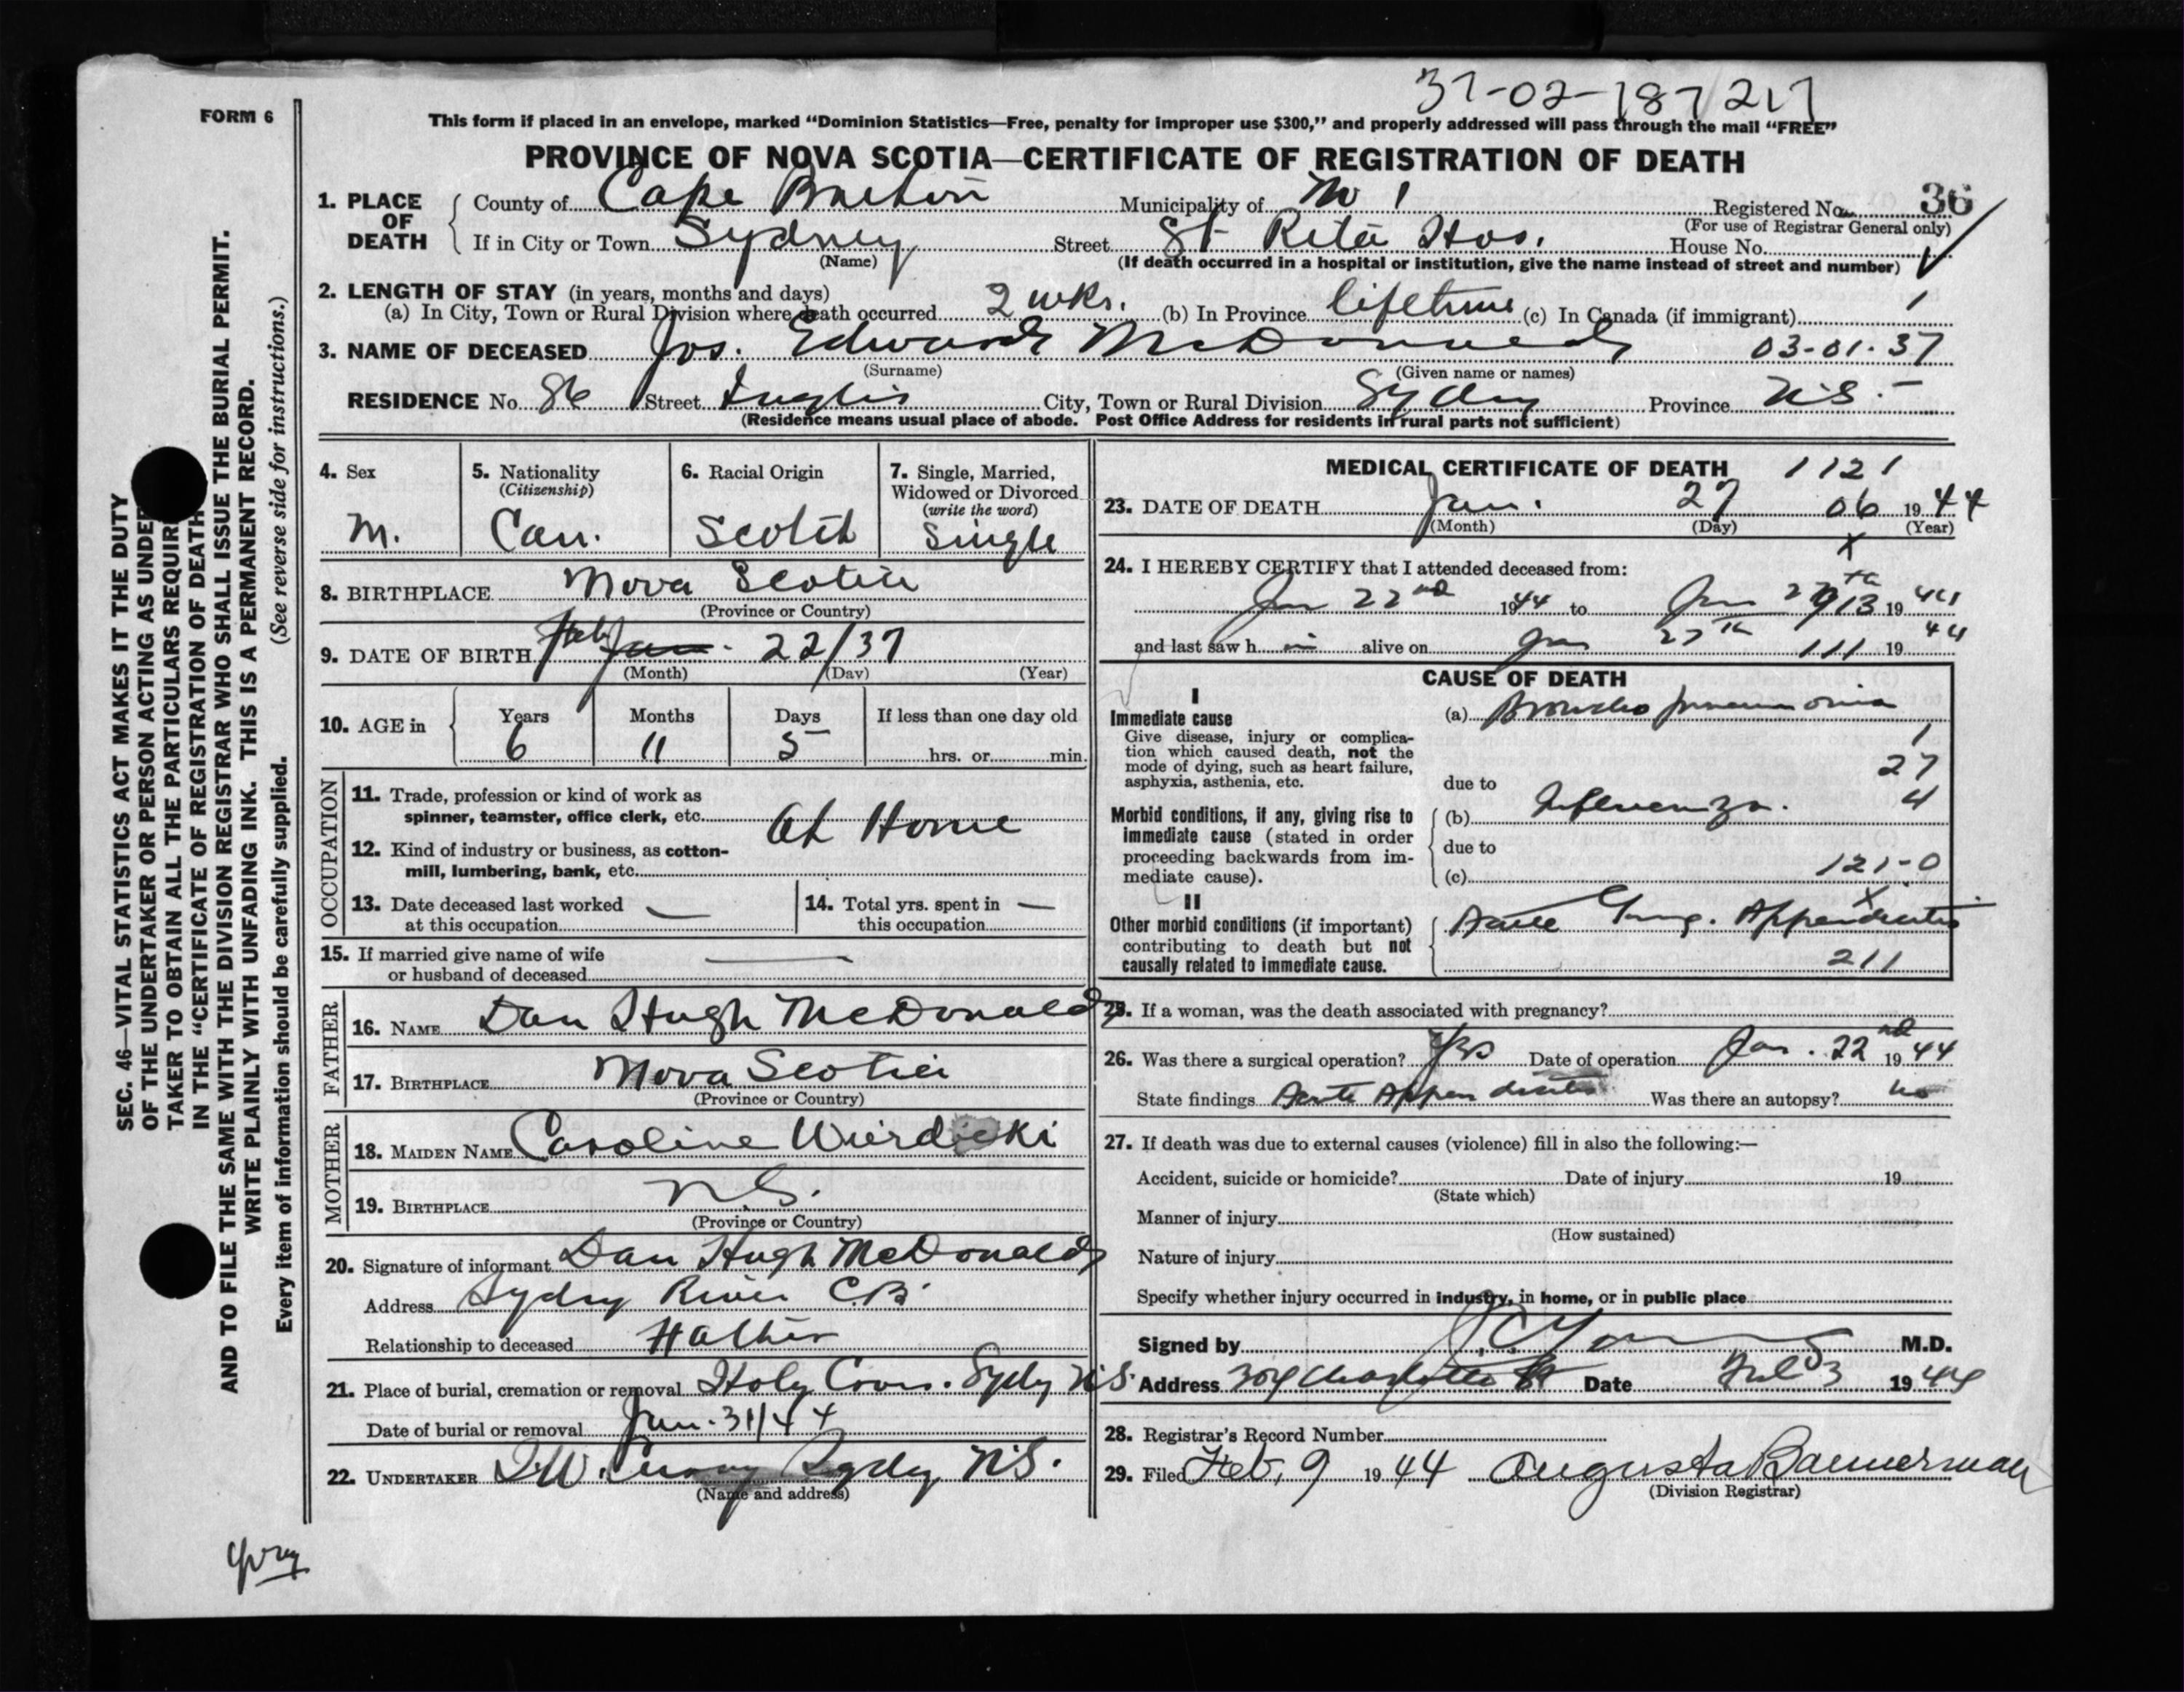 37-02-187217
FORM 6
This form if placed in an envelope, marked “Dominion Statistics—Free, penalty for improper use $300,” and properly addressed will pass through the mail “FREE”
PROVINCE OF NOVA SCOTIA—CERTIFICATE OF REGISTRATION OF DEATH
1. PLACE OF DEATH
County of Cape Breton Municipality of Registered No. 36
(For use of Registrar General only)
If in City or Town Sydney Street St Rita Hos. House No.
(Name) (If death occurred in a hospital or institution, give the name instead of street and number)
2. LENGTH OF STAY (in years, months and days)
(a) In City, Town or Rural Division where death occurred 2 wks. (b) In Province lifetime (c) In Canada (if immigrant) 1
3. NAME OF DECEASED Jos. Edward McDonald 03-01-37
(Surname) (Given name or names)
RESIDENCE No 86 Street Inglis City, Town or Rural Division Sydney Province N.S.
(Residence means usual place of abode. Post Office Address for residents in rural parts not sufficient)
4. Sex
M.
5. Nationality
(Citizenship)
Can.
6. Racial Origin
Scotch
7. Single, Married,
Widowed or Divorced
(write the word)
Single
8. BIRTHPLACE Nova Scotia
(Province or Country)
9. DATE OF BIRTH Feb Jan. 22/37
(Month) (Day) (Year)
10. AGE in Years Months Days If less than one day old
6 11 5 hrs. or min.
OCCUPATION
11. Trade, profession or kind of work as
spinner, teamster, office clerk, etc. At Home
12. Kind of industry or business, as cotton-
mill, lumbering, bank, etc.
13. Date deceased last worked —
at this occupation
14. Total yrs. spent in —
this occupation
15. If married give name of wife —
or husband of deceased
FATHER
16. NAME Dan Hugh McDonald
17. BIRTHPLACE Nova Scotia
(Province or Country)
MOTHER
18. MAIDEN NAME Caroline
19. BIRTHPLACE N.S.
(Province or Country)
20. Signature of informant Dan Hugh McDonald
Address Sydney River C.B.
Relationship to deceased Father
21. Place of burial, cremation or removal Holy Cross. Sydney N.S.
Date of burial or removal Jan. 31/44
22. UNDERTAKER Sydney N.S.
(Name and address)
MEDICAL CERTIFICATE OF DEATH 1121
23. DATE OF DEATH Jan. 27 06 1944
(Month) (Day) (Year)
X
24. I HEREBY CERTIFY that I attended deceased from:
Jan 22nd 1944 to Jan 27th 913 1944
and last saw h im alive on Jan 27th 111 1944
CAUSE OF DEATH
I
Immediate cause
Give disease, injury or complica-
tion which caused death, not the
mode of dying, such as heart failure,
asphyxia, asthenia, etc.
(a) Broncho pneumonia
1
27
due to
4
Morbid conditions, if any, giving rise to
immediate cause (stated in order
proceeding backwards from im-
mediate cause).
(b) Influenza.
due to
(c) 121-0
X
II
Other morbid conditions (if important)
contributing to death but not
causally related to immediate cause.
Acute Gang. Appendicitis
211
25. If a woman, was the death associated with pregnancy?
26. Was there a surgical operation? Yes Date of operation Jan. 22nd 1944
State findings Acute Appendicitis Was there an autopsy? no
27. If death was due to external causes (violence) fill in also the following:—
Accident, suicide or homicide? Date of injury 19
(State which)
Manner of injury
(How sustained)
Nature of injury
Specify whether injury occurred in industry, in home, or in public place
Signed by M.D.
Address Charlotte St Date Feb 3 1944
28. Registrar's Record Number
29. Filed Feb, 9 1944 Augusta Bannerman
(Division Registrar)
SEC. 46—VITAL STATISTICS ACT MAKES IT THE DUTY
OF THE UNDERTAKER OR PERSON ACTING AS UNDER
TAKER TO OBTAIN ALL THE PARTICULARS REQUIR
IN THE “CERTIFICATE OF REGISTRATION OF DEATH
AND TO FILE THE SAME WITH THE DIVISION REGISTRAR WHO SHALL ISSUE THE BURIAL PERMIT.
WRITE PLAINLY WITH UNFADING INK. THIS IS A PERMANENT RECORD.
Every item of information should be carefully supplied. (See reverse side for instructions.)